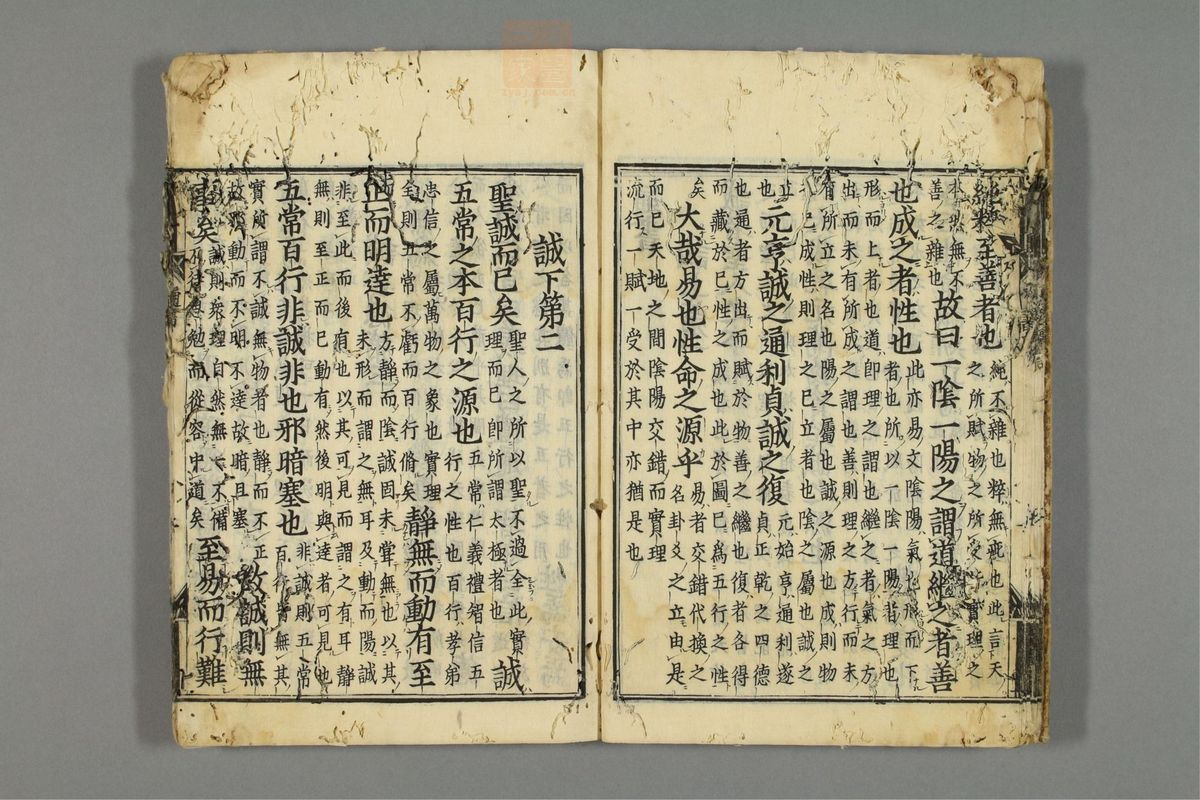 純粹至善者也
純不雜也粹無疵也此言天
之所賦物之所受皆實理之
本然無不
善之雜也
故曰一陰一陽之謂道繼之者善
也成之者性也
此亦易文陰陽氣也形而下
者也所以一陰一陽者理也
形而上者也道即理之謂也繼之者氣之方
出而未有所成之謂也善則理之方行而未
有所立之名也陽之屬也誠之源也成則物
之已成性則理之已立者也陰之屬也誠之
立
也
元亨誠之通利貞誠之復
元始亨通利遂
貞正乾之四德
也通者方出而賦於物善之繼也復者各得
而藏於已性之成也此於圖已爲五行之性
矣
大哉易也性命之源乎
易者交錯代換之
名卦爻之立由是
而已天地之間陰陽交錯而實理
流行一賦一受於其中亦猶是也
誠下第二
聖誠而已矣
聖人之所以聖不過全此實
理而已即所謂太極者也
誠
五常之本百行之源也
五常仁義禮智信五
行之性也百行孝弟
忠信之屬萬物之象也實理
全則五常不虧而百行脩矣
靜無而動有至
正而明達也
方靜而陰誠固未甞無也以其
未形而謂之無耳及動而陽誠
非至此而後有也以其可見而謂之有耳靜
無則至正而已動有然後明與達者可見也
五常百行非誠非也邪暗塞也
非誠則五常
百行皆無其
實所謂不誠無物者也靜而不正
故邪動而不明不達故暗且塞
故誠則無
事矣
誠則衆理自然無一不備
不待思勉而從容中道矣
至易而行難